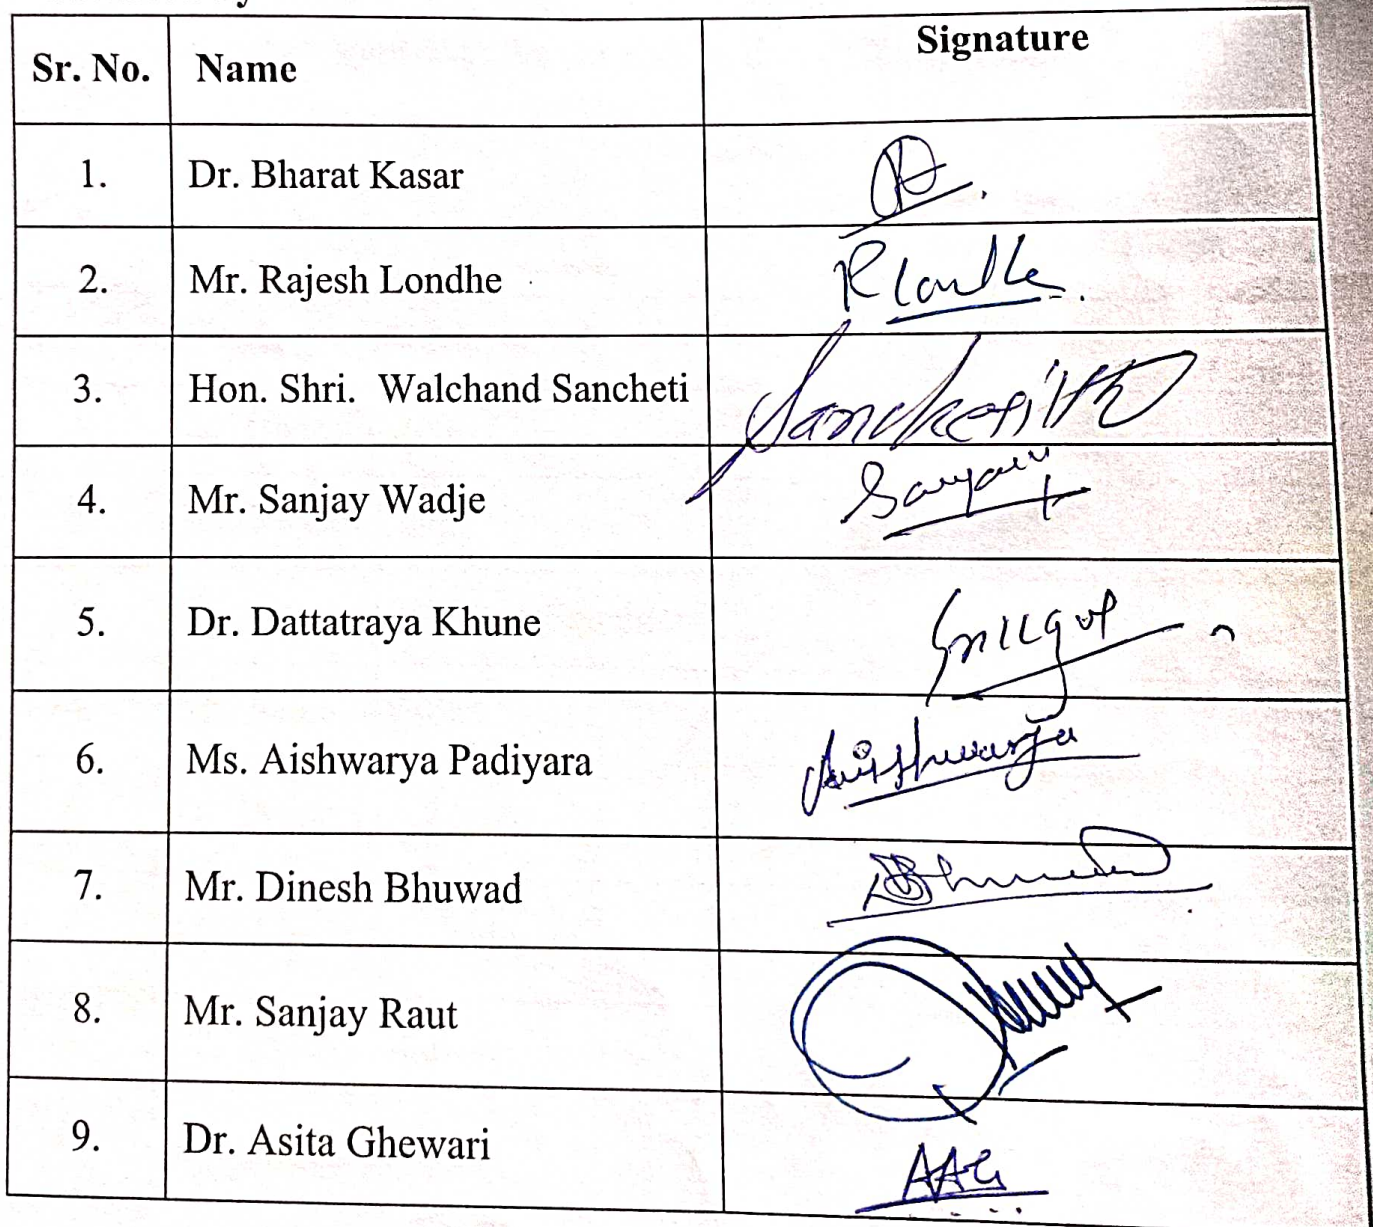 Sr. No. Name Signature
1. Dr. Bharat Kasar
2. Mr. Rajesh Londhe RLondhe
3. Hon. Shri. Walchand Sancheti
4. Mr. Sanjay Wadje
5. Dr. Dattatraya Khune
6. Ms. Aishwarya Padiyara Aishwarya
7. Mr. Dinesh Bhuwad
8. Mr. Sanjay Raut
9. Dr. Asita Ghewari AAG